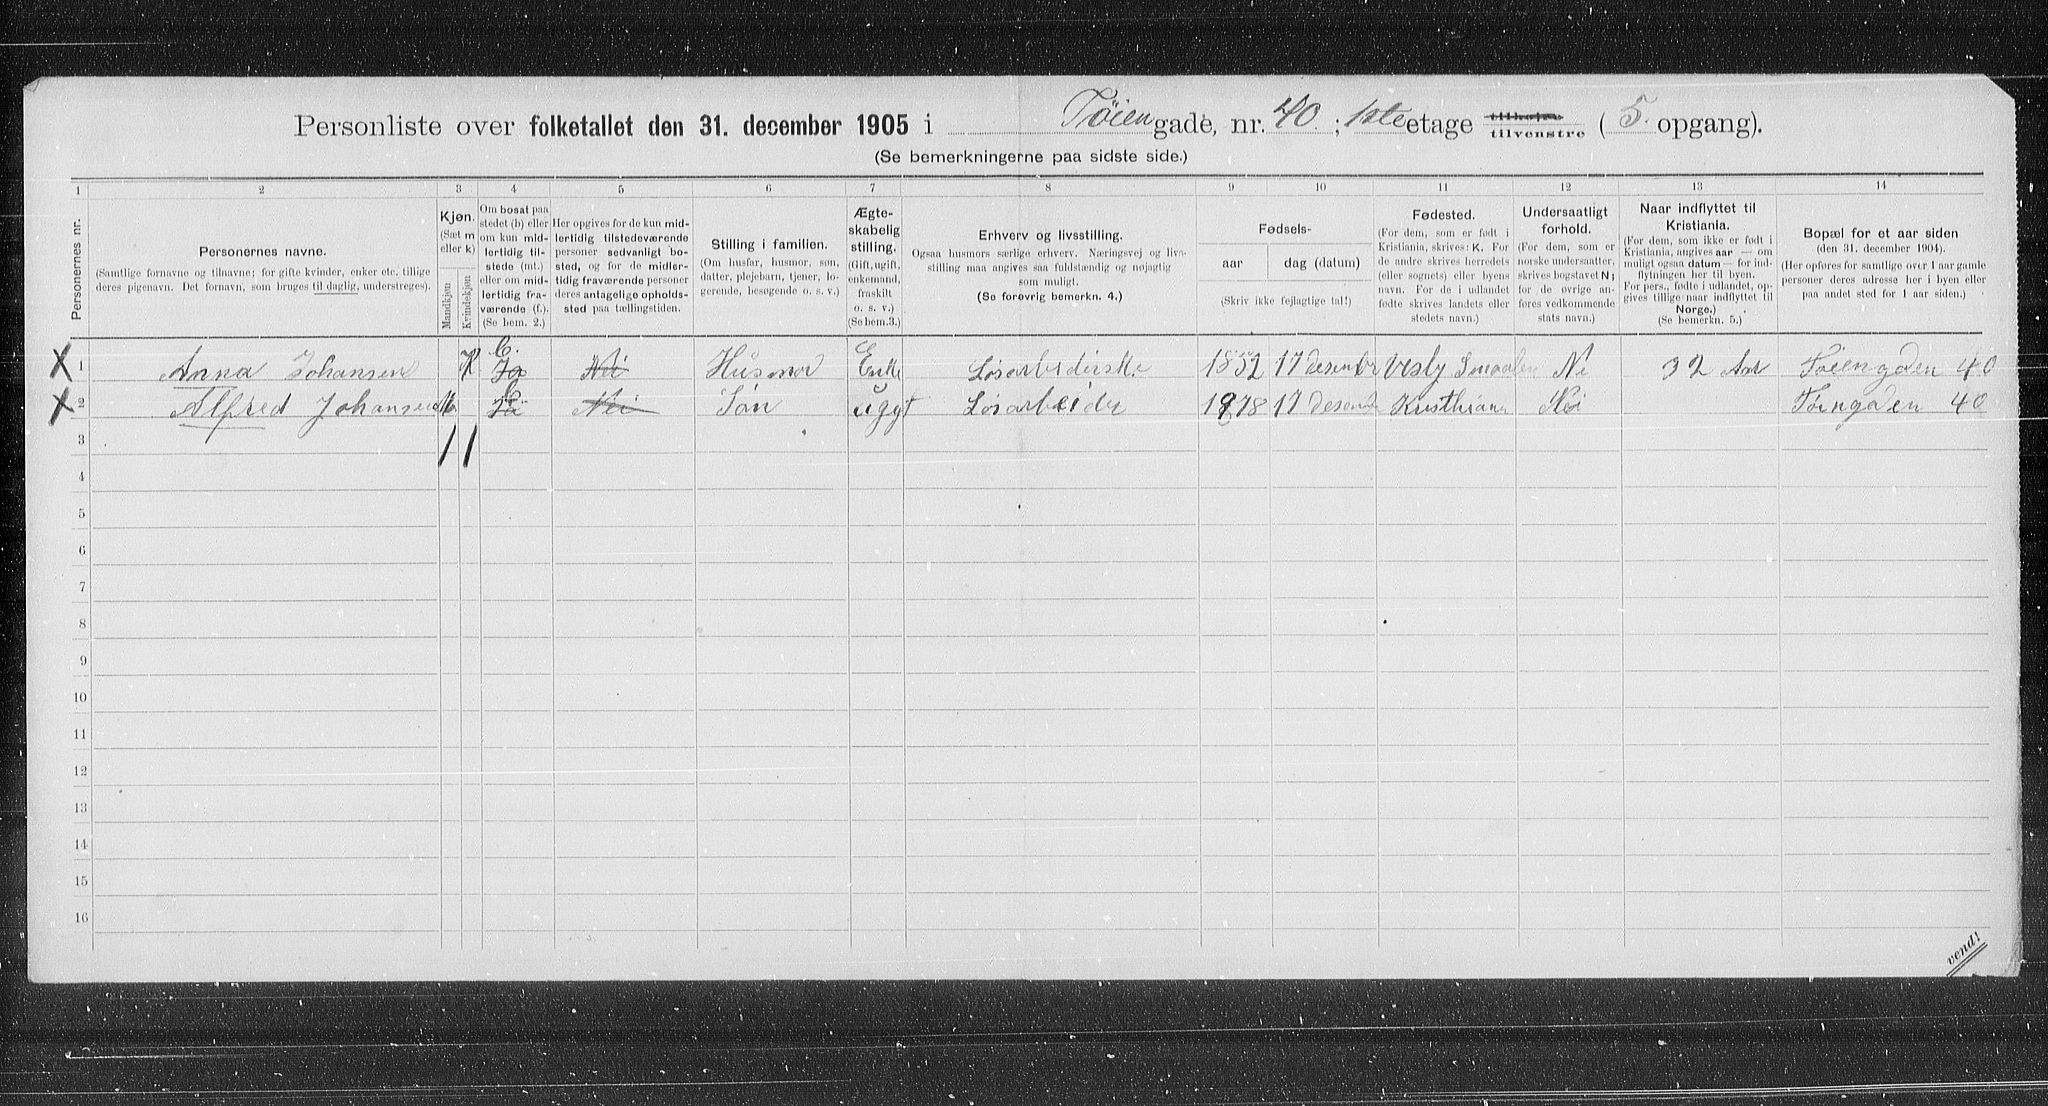 Personliste over folketallet den 31. december 1905 i Tøien gade, nr. 40 ; 1ste etage tilhøjre tilvenstre ( 5. opgang).
(Se bemerkningerne paa sidste side.)
1 2 3 4 5 6 7 8 9 10 11 12 13 14
Personernes nr.
Personernes navne.
(Samtlige fornavne og tilnavne; for gifte kvinder, enker etc. tillige
deres pigenavn. Det fornavn, som bruges til daglig, understreges).
Kjøn.
(Sæt m
eller k)
Mandkjøn
Kvindekjøn
Om bosat paa
stedet (b) eller
om kun mid-
lertidig til-
stede (mt.)
eller om mid-
lertidig fra-
værende (f.).
(Se bem. 2.)
Her opgives for de kun mid-
lertidig tilstedeværende
personer sedvanligt bo-
sted, og for de midler-
tidig fraværende personer
deres antagelige opholds-
sted paa tællingstiden.
Stilling i familien.
(Om husfar, husmor, søn,
datter, plejebarn, tjener, lo-
gerende, besøgende o. s. v.)
Ægte-
skabelig
stilling.
(Gift, ugift,
enkemand,
fraskilt
o. s. v.)
(Se bem.3.)
Erhverv og livsstilling.
Ogsaa husmors særlige erhverv. Næringsvej og livs-
stilling maa angives saa fuldstændig og nøjagtig
som muligt.
(Se forøvrig bemerkn. 4.)
Fødsels-
aar dag (datum)
(Skriv ikke fejlagtige tal!)
Fødested.
(For dem, som er født i
Kristiania, skrives: K. For
de andre skrives herredets
(eller sognets) eller byens
navn. For de i udlandet
fødte skrives landets eller
stedets navn.)
Undersaatligt
forhold.
(For dem, som er
norske undersaatter,
skrives bogstavet N;
for de øvrige an-
føres vedkommende
stats navn.)
Naar indflyttet til
Kristiania.
(For dem, som ikke er født i
Kristiania, angives aar — om
muligt ogsaa datum — for ind-
flytningen her til byen.
For pers., fødte i udlandet, op-
gives tillige naar indflyttet til
Norge.)
(Se bemerkn. 5.)
Bopæl for et aar siden
(den 31. december 1904).
(Her opføres for samtlige over 1 aar gamle
personer deres adresse her i byen eller
paa andet sted for 1 aar siden.)
1 Anna Johansen K b. Ja Nei Husmor Enke 1852 17 desember N 32 Aar Tøiengaden 40
2 Alfred Johansen M b Ja Nei Søn uggt Løsarbeider 1878 17 Nei 40
3
4
5
6
7
8
9
10
11
12
13
14
15
16
vend!